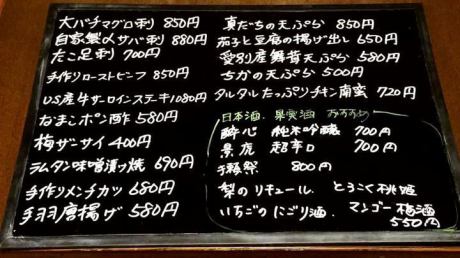 大バチマグロ刺 850円
自家製〆サバ刺 880円
たこ足刺 700円
手作りローストビーフ 850円
US産牛サーロインステーキ1080円
なまこポン酢 580円
梅ザーサイ 400円
ラムタン味噌漬け焼 690円
手作りメンチカツ 680円
手羽唐揚げ 580円
真だちの天ぷら 850円
茄子と豆腐の揚げ出し 650円
愛別産舞茸天ぷら 580円
ちかの天ぷら 500円
タルタルたっぷりチキン南蛮 720円
日本酒、果実酒 おすすめ
酔心 純米吟醸 700円
景虎 超辛口 700円
獺祭 800円
梨のリキュール、とろこく
いちごのにごり酒、マンゴー梅酒
550円